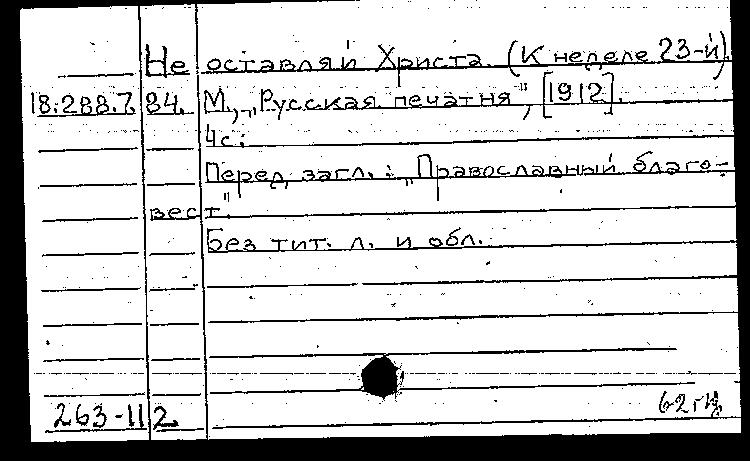 Не оставляй Христа. (К неделе 23-й).
18.288.7.84. М., „Русская печатня", [1912].
4с.
Перед загл.: „Православный благо-
вест."
Без тит. л. и обл.
263-112